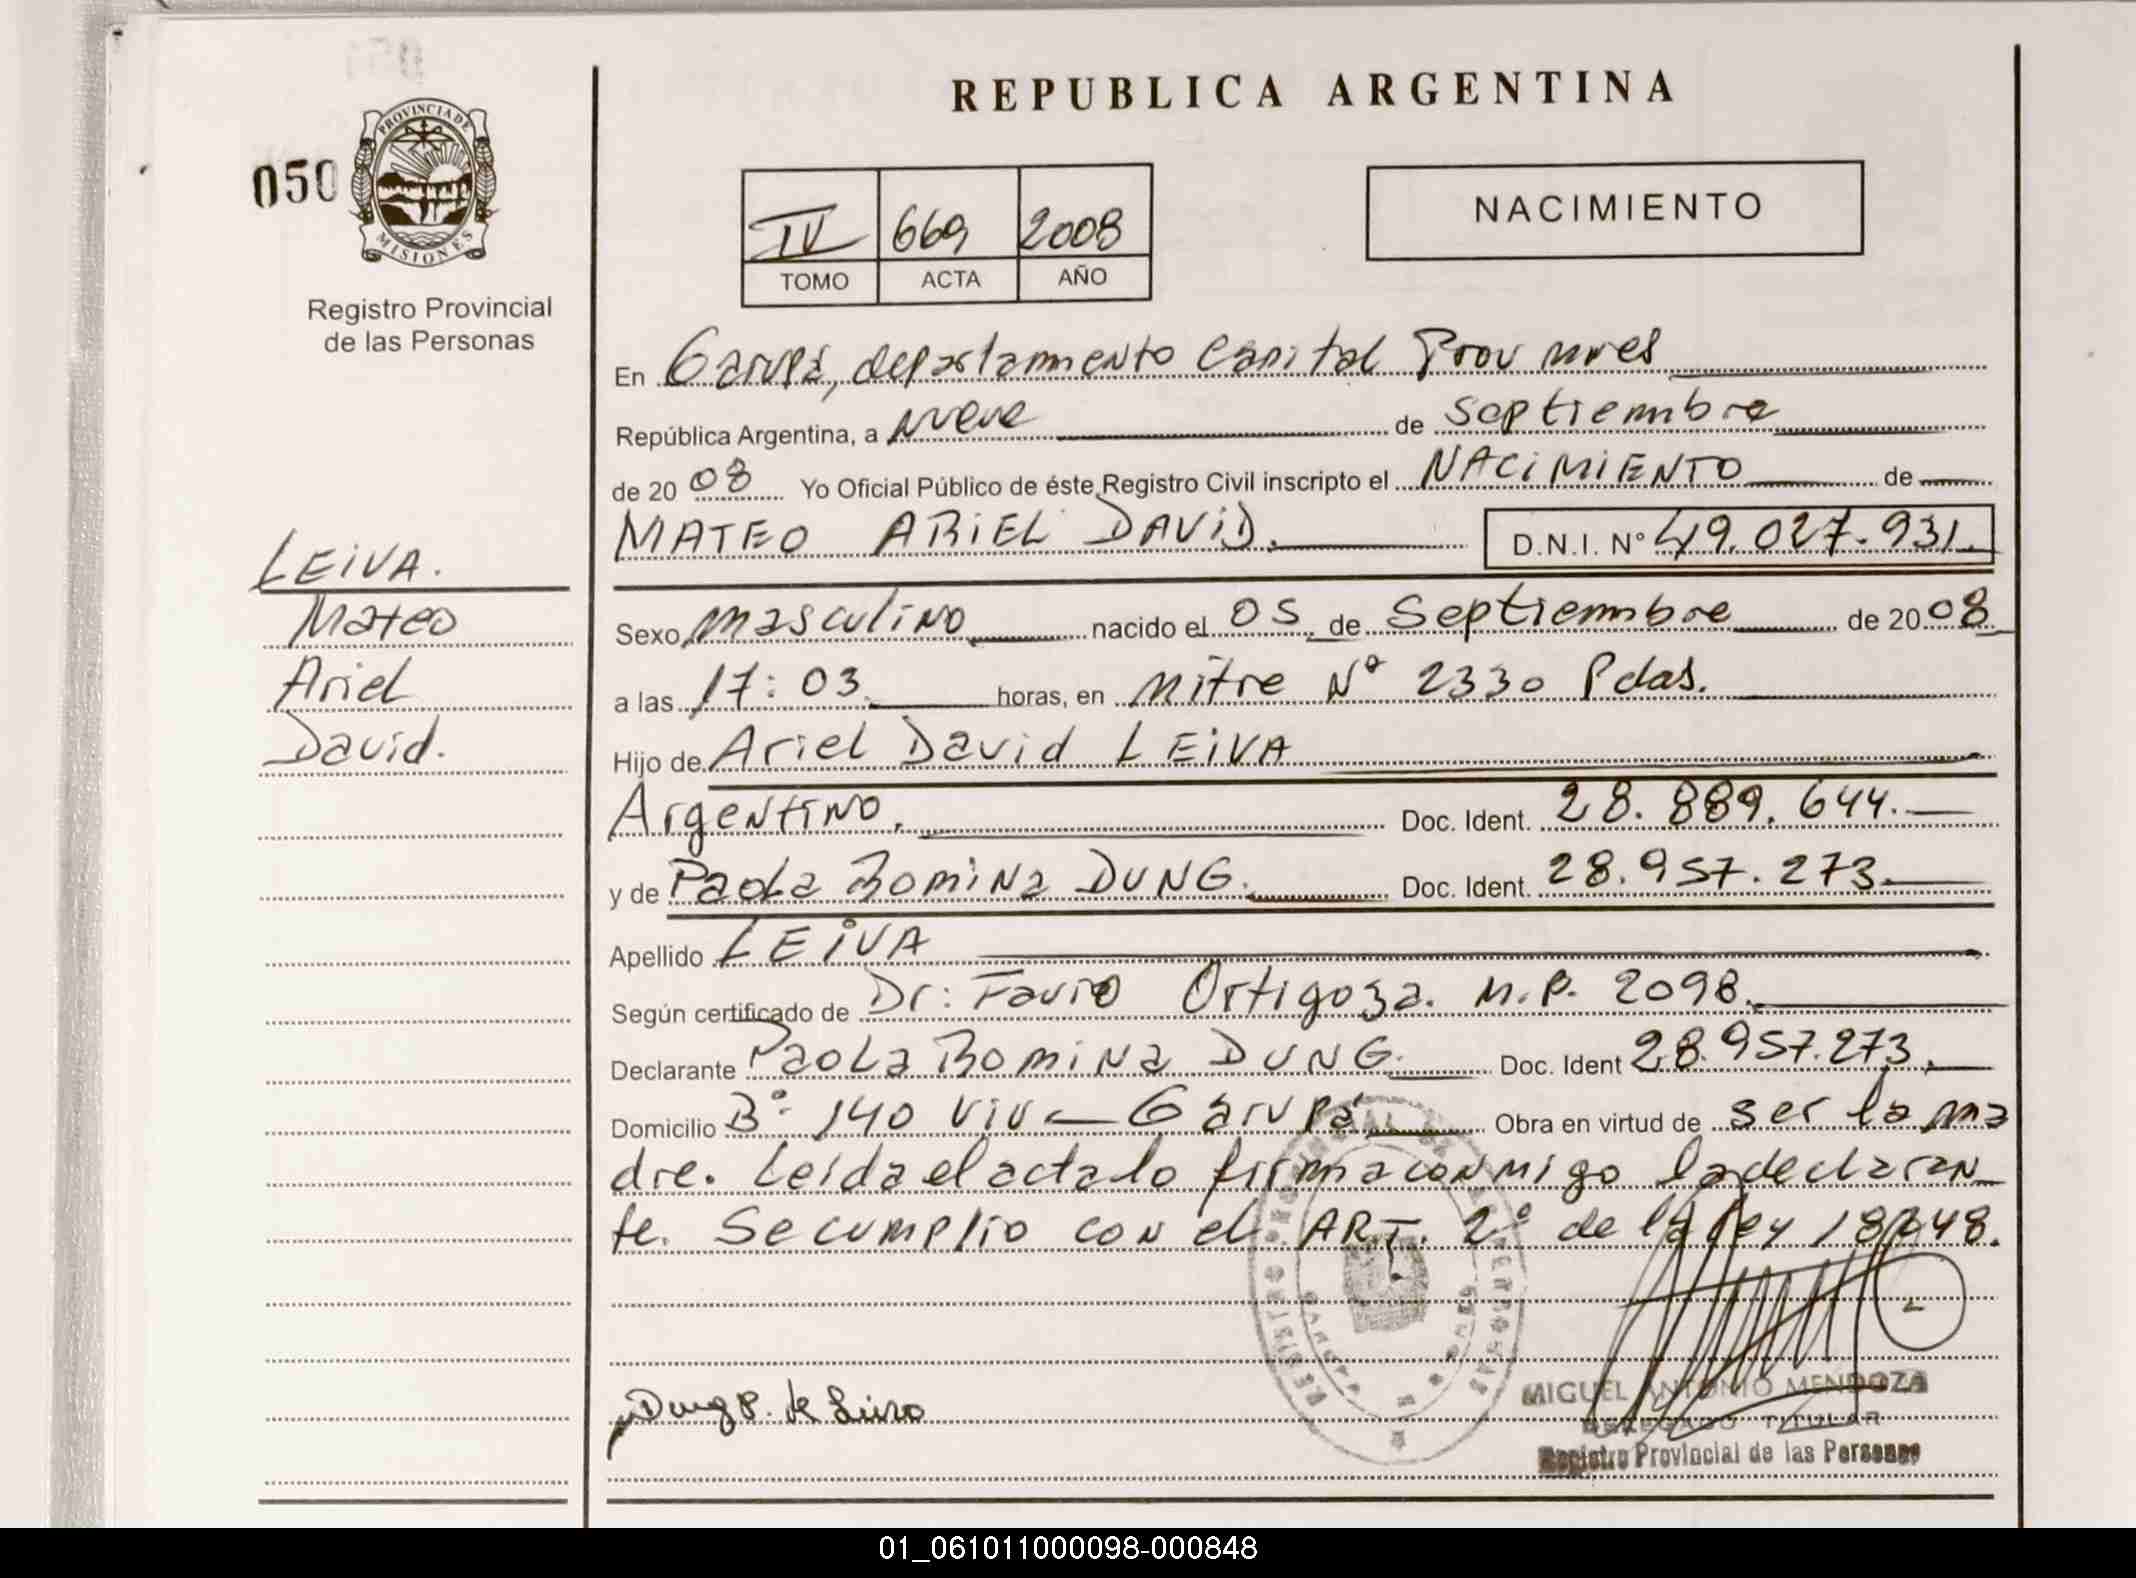 REPUBLICA ARGENTINA
050
PROVINCIA DE
MISIONES
Registro Provincial
de las Personas
IV 669 2008
TOMO ACTA AÑO
NACIMIENTO
En Garupá, departamento Capital Prov mnes
República Argentina, a nueve de septiembre
de 2008 Yo Oficial Público de éste Registro Civil inscripto el NACIMIENTO de
MATEO ARIEL DAVID. D.N.I. Nº 49.027.931.
LEIVA.
Mateo
Ariel
David.
Sexo masculino nacido el 05 de Septiembre de 2008
a las 17:03 horas, en mitre Nº 2330 Pdas.
Hijo de Ariel David LEIVA
Argentino. Doc. Ident. 28.889.644.
y de Paola Romina DUNG. Doc. Ident. 28.957.273.
Apellido LEIVA
Según certificado de Dr: Favio Ortigoza. M.P. 2098.
Declarante Paola Romina DUNG. Doc. Ident 28.957.273.
Domicilio Bº 140 viv - Garupá Obra en virtud de ser la ma
dre. Leida el acta lo firma conmigo la declaran
te. Se cumplio con el ART. 2º de la ley 18248.
REGISTRO PROVINCIAL DE LAS PERSONAS
GARUPA
Dung P. de Leiva
MIGUEL ANTONIO MENDOZA
DELEGADO TITULAR
Registro Provincial de las Personas
01_061011000098-000848